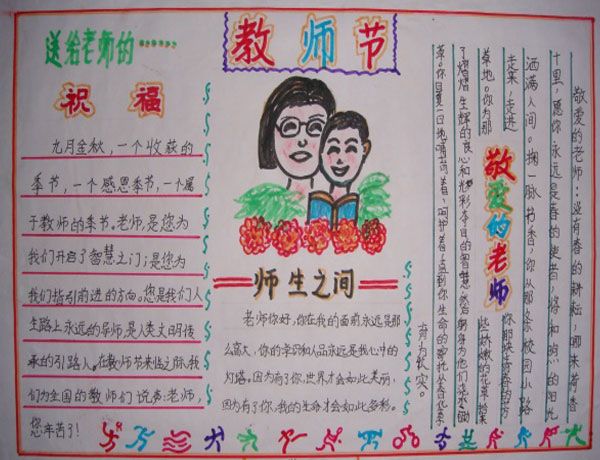 送给老师的……
祝福
九月金秋,一个收获的
季节,一个感恩季节,一个属
于教师的季节。老师,是您为
我们开启了智慧之门;是您为
我们指引前进的方向。您是我们人
生路上永远的导师,是人类文明传
承的引路人。在教师节来临之际,我
们为全国的教师们说声:老师,
您辛苦了!
教师节
师生之间
老师你好,你在我的面前永远是那
么高大,你的学识和人品永远是我心中的
灯塔。因为有了你,世界才会如此美丽;
因为有了你,我的生命才会如此多彩。
敬爱的老师
敬爱的老师:没有春的耕耘,哪来荷香
十里,愿你永远是春的使者,将和煦的阳光
洒满人间。掬一脉书香,你从那条校园小路
走来,走进你那块青春的芳
草地。你为那些娇嫩的花草捧来
了熠熠生辉的良心和光彩夺目的智慧,然后躬身为他们
草。你日复一日地哺育着,呵护着,直到你生命的寄托
育为长实。